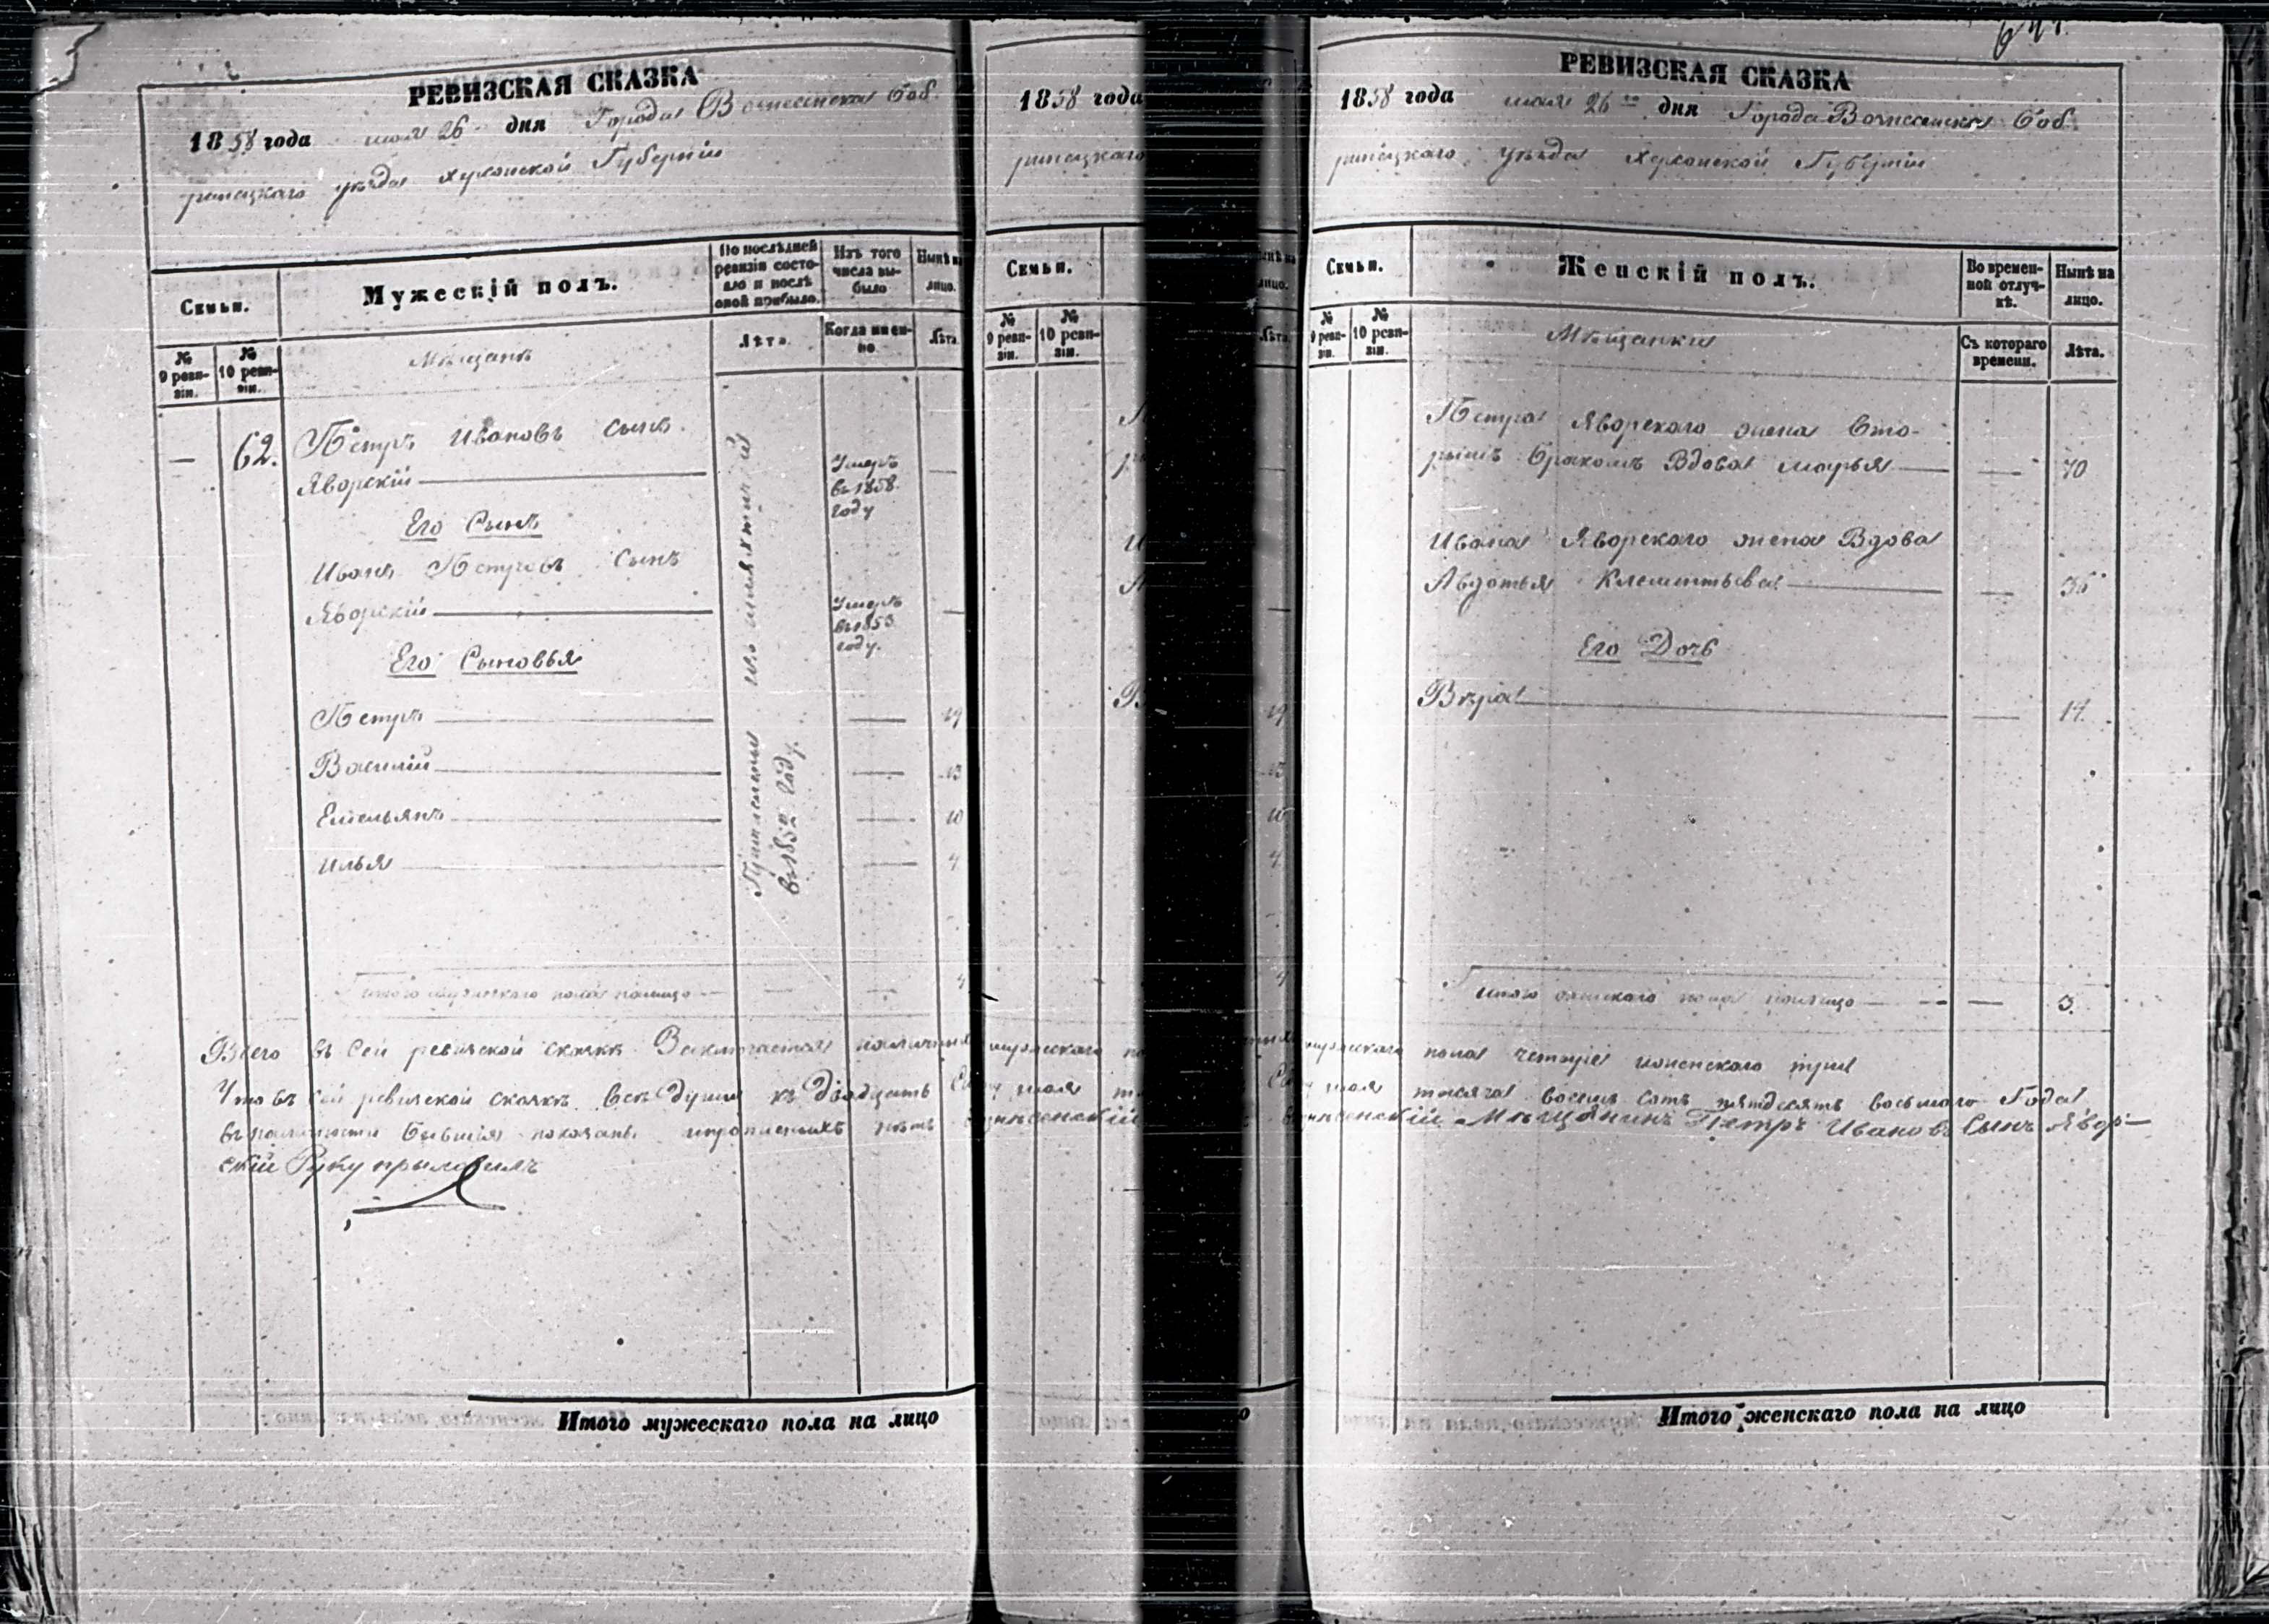 РЕВИЗСКАЯ СКАЗКА
1858 года мая 26 дня Города Вознесенска Боб.
ринецкаго уѣзда Херсонской Губерніи
Семьи.
Мужескій полъ.
По послѣдней ревизіи состояло и послѣ оной прибыло.
Изъ того числа выбыло
Нынѣ на лицо.
№ 9 ревизіи.
№ 10 ревизіи.
Мѣщане
Лѣта.
Когда именно
Лѣта.
— 62. Петръ Ивановъ Сынъ
Яворскій —
Умеръ
въ 1858.
году
—
Его Сынъ
Иванъ Петровъ Сынъ
Яворскій —
Умеръ
въ 1853
году.
—
Его Сыновья
Петръ — — 19
Василій — — 13
Емельянъ — — 10
Илья — — 4
въ 1852 году.
Итого мужескаго пола налицо — — — 4
1858 года
ринецкаго
Семьи.
№ 9 ревизіи.
№ 10 ревизіи.
лицо.
Лѣта.
19
13
10
4
4
РЕВИЗСКАЯ СКАЗКА
1858 года мая 26го дня Города Вознесенска Боб.
ринецкаго уѣзда Херсонской Губерніи
Семьи.
Женскій полъ.
Во временной отлучкѣ.
Нынѣ на лицо.
№ 9 ревизіи.
№ 10 ревизіи.
Мѣщанки
Съ котораго времени.
Лѣта.
Петра Яворскаго жена Вто-
рымъ бракомъ Вдова Марья — — 70
Ивана Яворскаго жена Вдова
Авдотья Клементьева — — 35
Его Дочь
Вѣра — — 14.
Итого женскаго пола налицо — — — 3.
Всего въ сей ревизской сказкѣ Заключается наличныя мужскаго пола четыре иженскаго три
Что въ сей ревизской сказкѣ всѣ души къ Двадцать мая тысяча восемь сотъ пятдесятъ восьмаго Года
въ наличности бывшія показаны и прописныхъ нѣтъ Вознесенскій Мѣщанинъ Петръ Ивановъ Сынъ Явор-
скій Руку приложилъ
Итого мужескаго пола на лицо
Итого женскаго пола на лицо